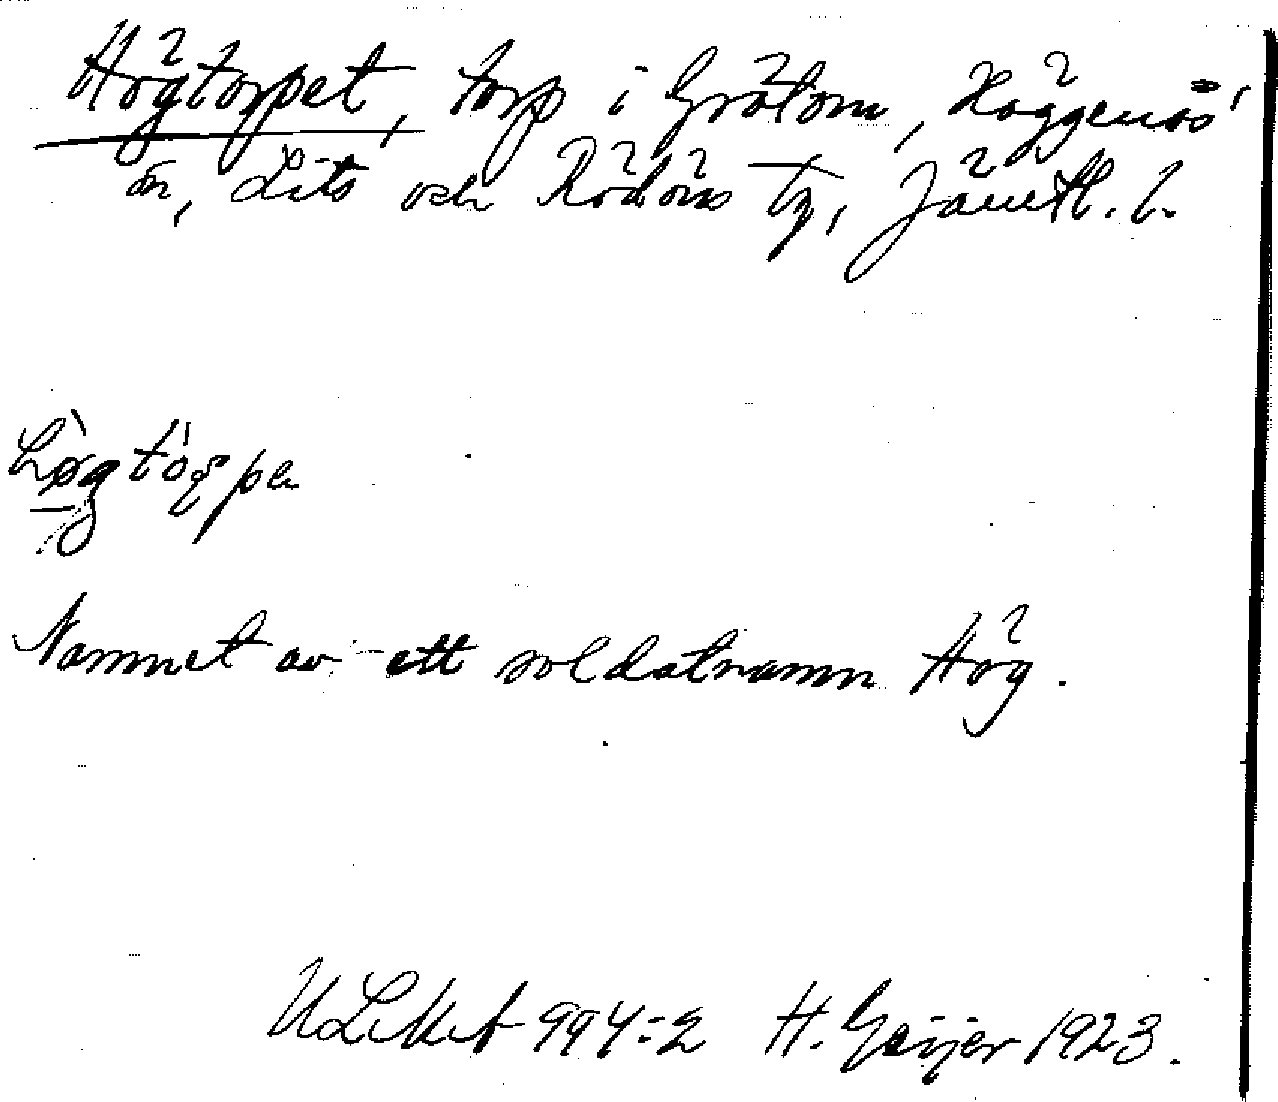 Högtorpet, torp i Grötom, Häggenås
sn, Lits och Rödöns tg, Jämtl. l.
Namnet av ett soldatnamn Hög.
ULMA 994:2 H. Geijer 1923.